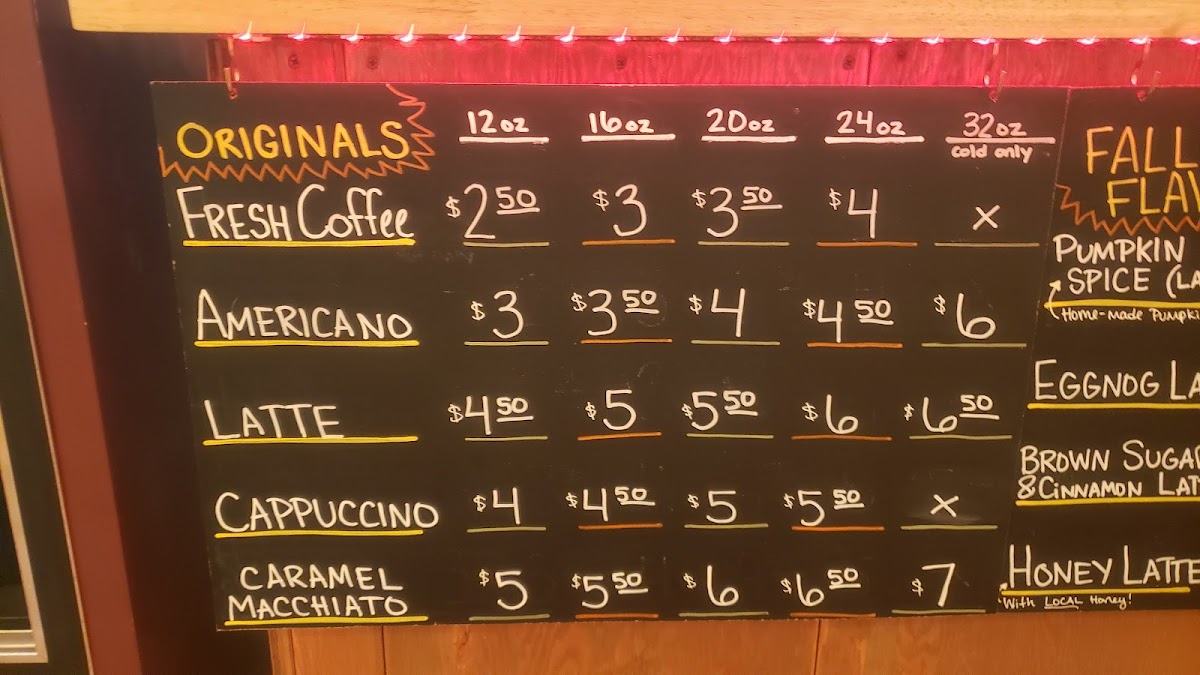 ORIGINALS 12oz 16oz 20oz 24oz 32oz
cold only
FRESH Coffee $2 50 $3 $3 50 $4 x
AMERICANO $3 $3 50 $4 $4 50 $6
LATTE $4 50 $5 $5 50 $6 $6 50
CAPPUCCINO $4 $4 50 $5 $5 50 x
CARAMEL
MACCHIATO $5 $5 50 $6 $6 50 $7
FALL
PUMPKIN
SPICE
Home-made
EGGNOG
BROWN SUGAR
& CINNAMON
HONEY LATTE
With LOCAL Honey!